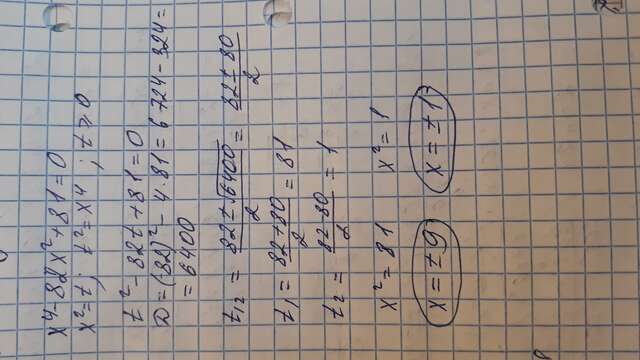 x⁴-82x²+81=0
x²=t; t²=x⁴; t⩾0
t²-82t+81=0
D=(-82)²-4·81=6724-324=
=6400
t₁,₂ = (82±√6400)/2 = (82±80)/2
t₁ = (82+80)/2 = 81
t₂ = (82-80)/2 = 1
x²=81 x²=1
x=±9 x=±1